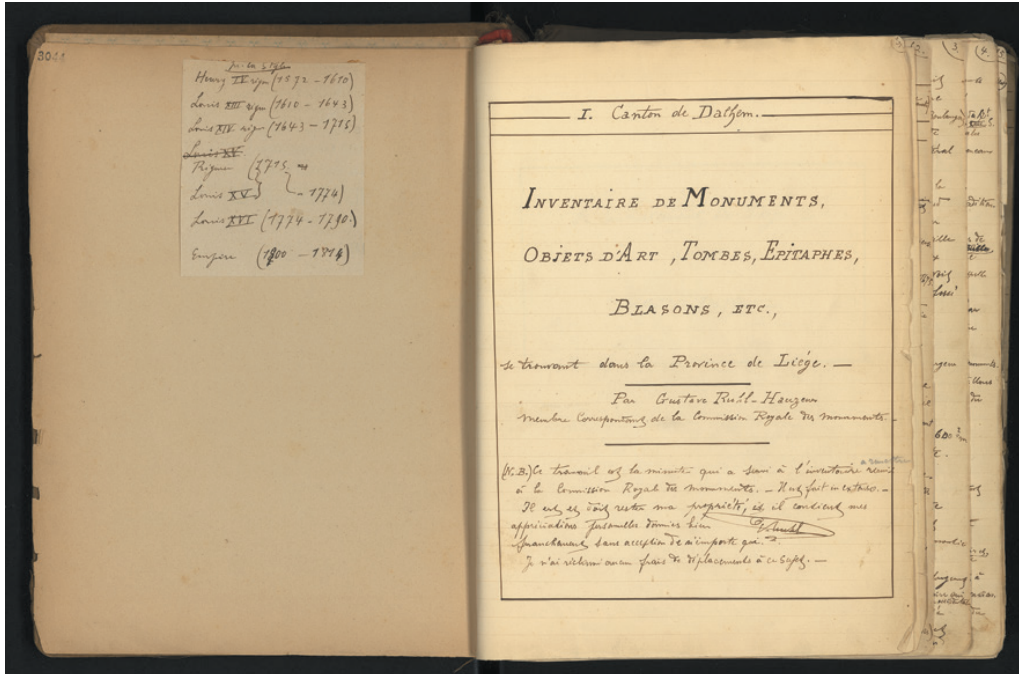 3044
Henry IV règne (1572 - 1610)
Louis XIII règne (1610 - 1643)
Louis XIV règne (1643 - 1715)
Louis XV
(1715
Louis XV - 1774)
Louis XVI (1774 - 1790.)
Empire (1800 - 1814)
I. Canton de Dalhem.
INVENTAIRE DE MONUMENTS,
OBJETS D'ART, TOMBES, EPITAPHES,
BLASONS, ETC.,
se trouvant dans la Province de Liége. —
Par Gustave Ruhl-Hauzeur
membre Correspondant de la Commission Royale des monuments. -
(N.B.) Ce travail est la minute qui a servi à l'inventaire remis
à la Commission Royale des monuments. - Il est fait en entier. -
Il est et doit rester ma propriété, et il contient mes
appréciations personnelles données bien
franchement sans acception de n'importe qui. -
Je n'ai réclamé aucun frais de déplacements à ce sujet. —